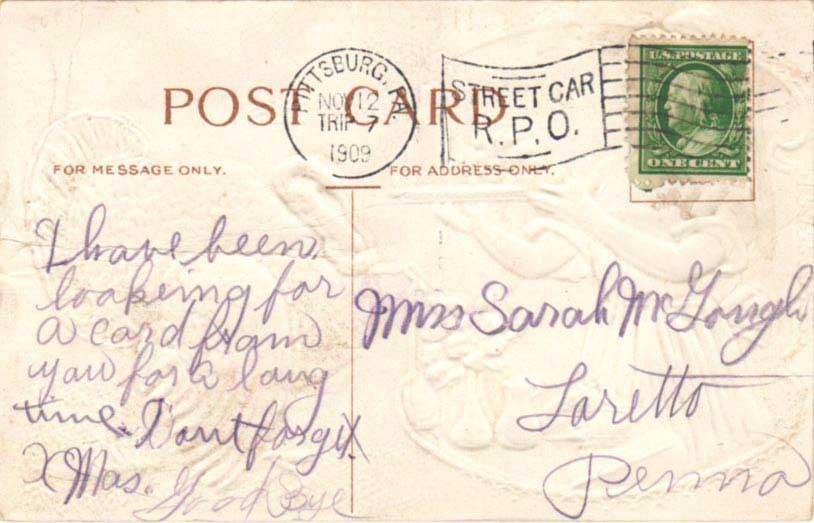 POST CARD
PITTSBURG, PA.
NOV 12
TRIP 7
1909
STREET CAR
R.P.O.
U.S. POSTAGE
ONE CENT
FOR MESSAGE ONLY.
FOR ADDRESS ONLY.
I have been
lookeing for
a card from
you for a long
time. Dont forget
X Mas. Good Bye
Miss Sarah McGough
Loretto
Penna